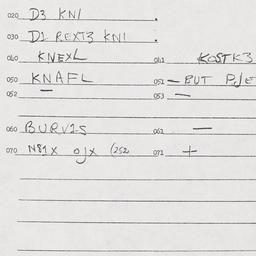 020 D3 KNI .
030 D1 REXT3 KNI .
040 KNEXL 041 KOSTK3
050 KNAFL 051 – BUT PJE
052 – 053 –
060 BURV1S 061 –
070 N81X OJX (252 071 +